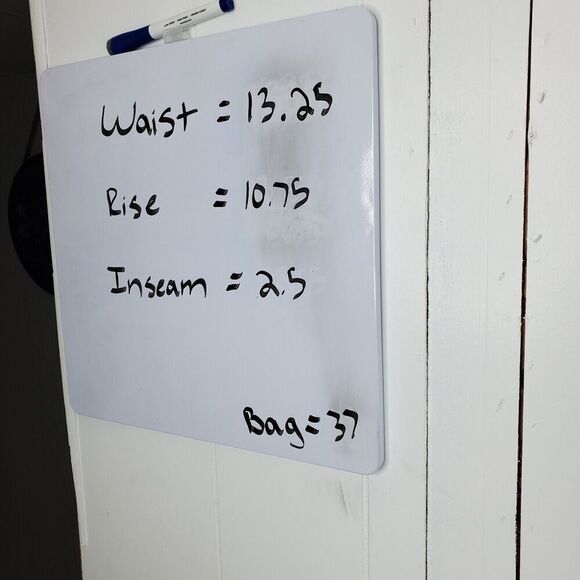 Waist = 13.25
Rise = 10.75
Inseam = 2.5
Bag = 37